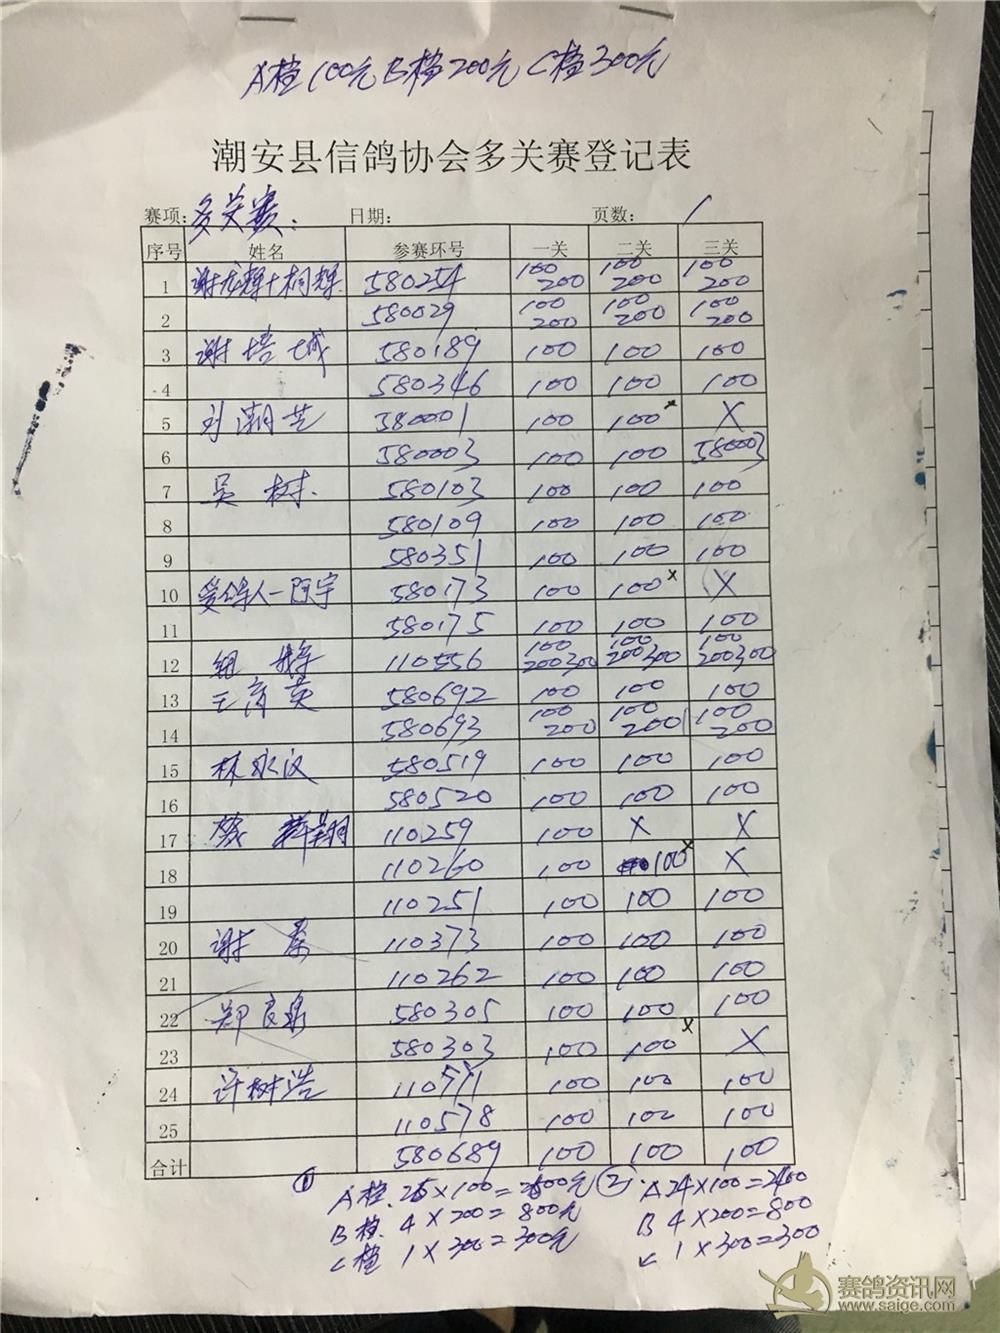 A档100元 B档200元 C档300元
潮安县信鸽协会多关赛登记表
赛项:多关赛. 日期: 页数: 1
序号 姓名 参赛环号 一关 二关 三关
1 谢龙辉+桐辉. 580254 100 200 100 200 100 200
2 580029 100 200 100 200 100 200
3 谢培城 580189 100 100 100
4 580346 100 100 100
5 刘潮芝 580001 100 100 x X
6 580003 100 100 580003
7 吴树. 580103 100 100 100
8 580109 100 100 100
9 580351 100 100 100
10 爱鸽人一阿宇 580173 100 100 x X
11 580175 100 100 100
12 110556 100 200 300 100 200 300 100 200 300
13 王育英 580692 100 100 100
14 580693 100 200 100 200 100 200
15 林永汉 580519 100 100 100
16 580520 100 100 100
17 110259 100 X X
18 110260 100 100 x X
19 110251 100 100 100
20 谢 110373 100 100 100
21 110262 100 100 100
22 郑良 580305 100 100 100
23 580303 100 100 x X
24 许树浩 110571 100 100 100
25 110578 100 100 100
合计 580689 100 100 100
① A档. 26×100=2600元 ② A24×100=2400
B档. 4×200=800元 B 4×200=800
C档 1×300=300元 C 1×300=300
赛鸽资讯网
www.saige.com